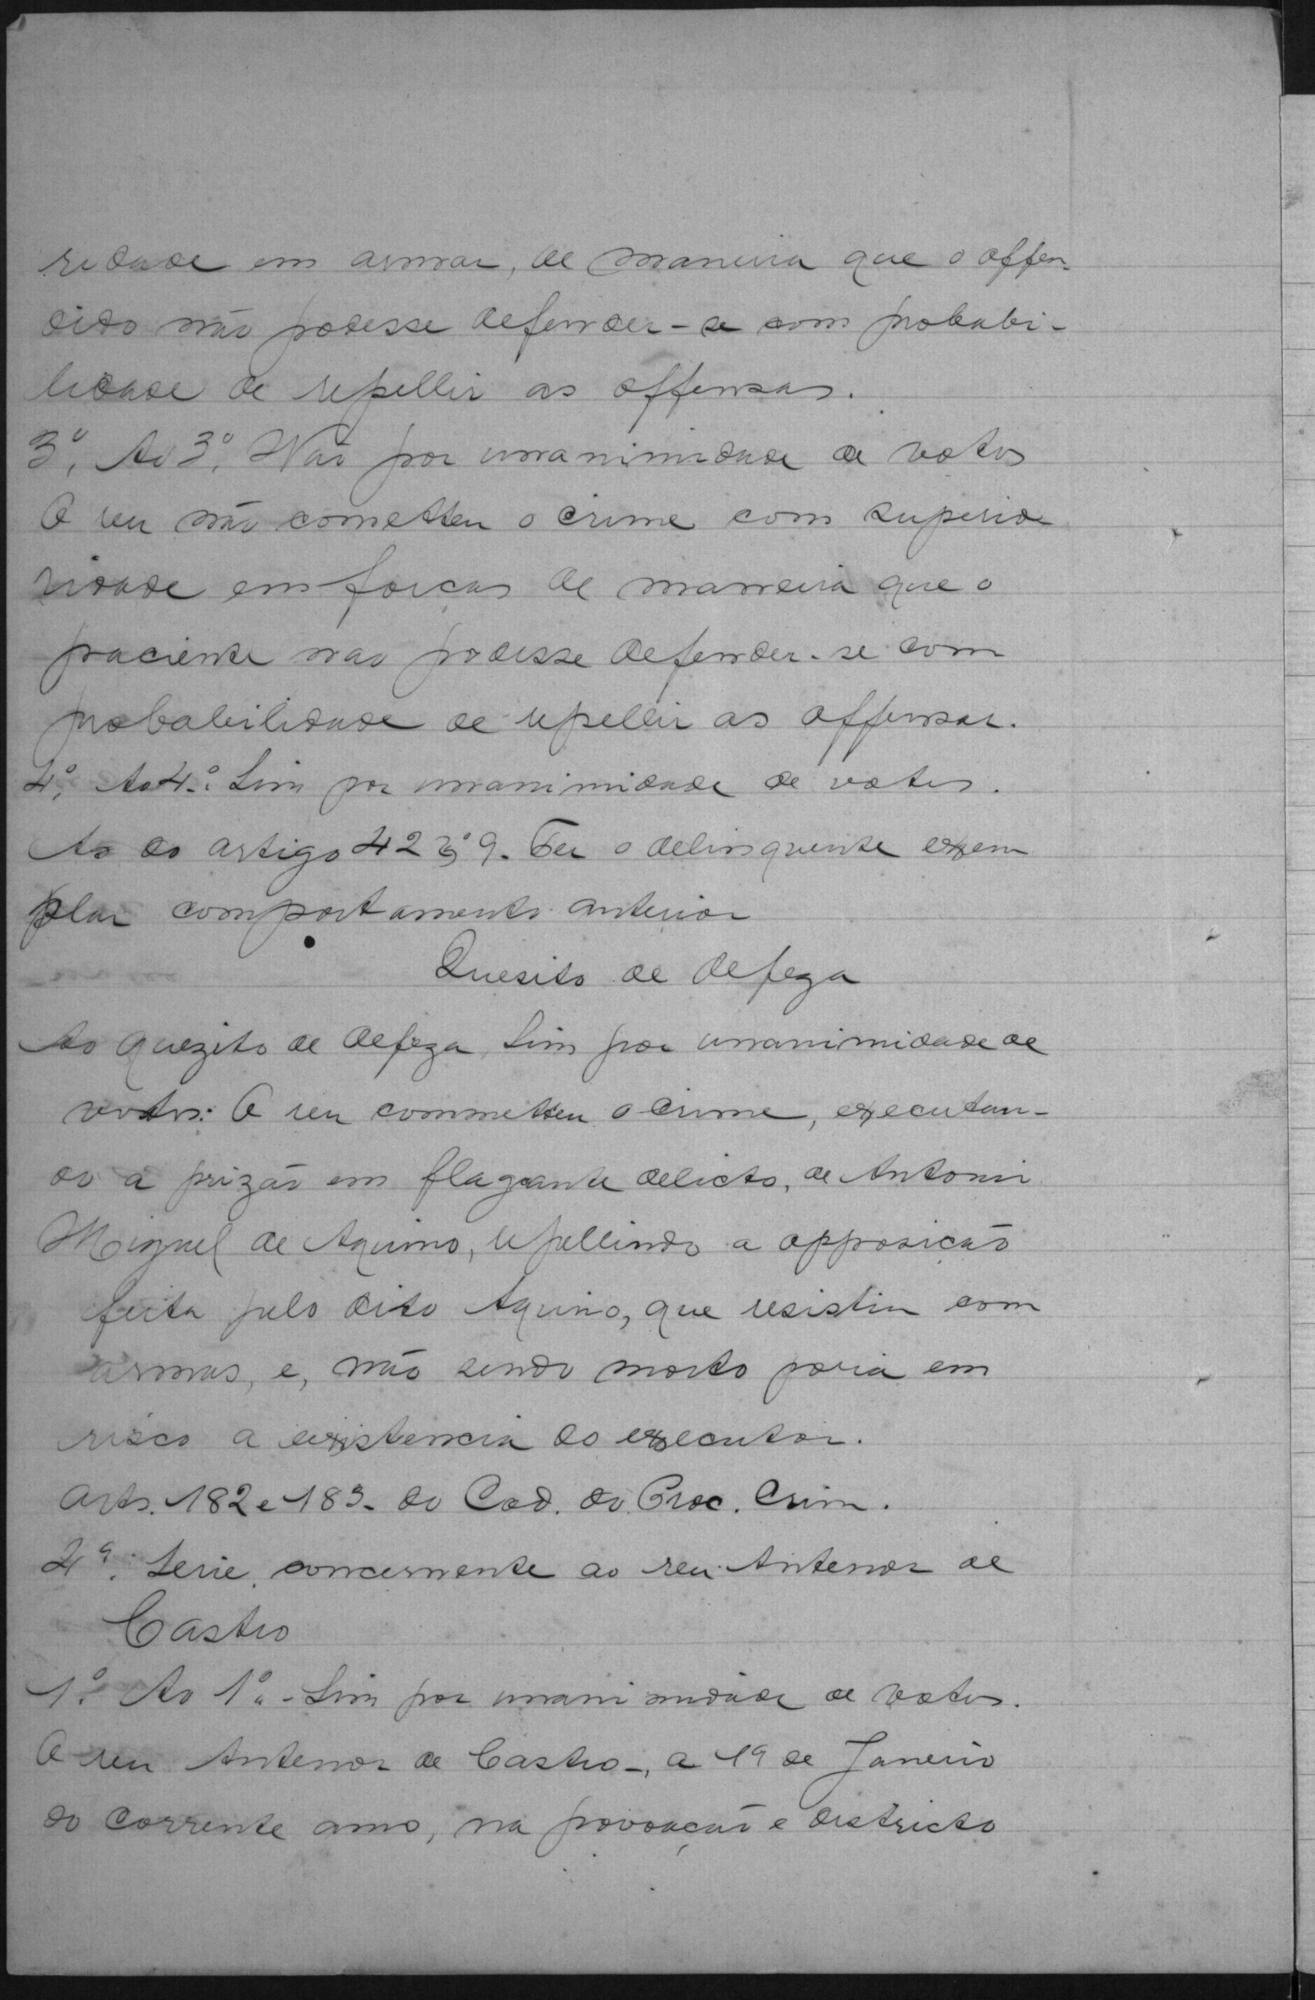 ridade em armas, de maneira que o offen-
dido não podesse defender-se com probabi-
lidade de repellir as offensas.
3º. Ao 3º. Não por unanimidade de votos
O reu não cometteu o crime com superio
ridade em forças de maneira que o
paciente não podesse defender-se com
probabilidade de repellir as offensas.
4º. Ao 4º. Sim por unanimidade de votos.
Ao do artigo 42 § 9. Ter o delinquente exem
plar comportamento anterior
Quesito de defeza
Ao quezito de defeza, Sim por unanimidade de
votos: O reu commetteu o crime, executan-
do a prizão em flagrante delicto, de Antonio
Miguel de Aquino, repellindo a opposição
feita pelo dito Aquino, que resistiu com
armas, e, não sendo morto poria em
risco a existencia do executor.
Arts. 182 e 183. do Cod. do Proc. Crim.
4ª. Serie, concernente ao reu Antenor de
Castro
1º. Ao 1º. - Sim por unanimidade de votos.
O reu Antenor de Castro, a 19 de Janeiro
do corrente anno, na povoação e districto